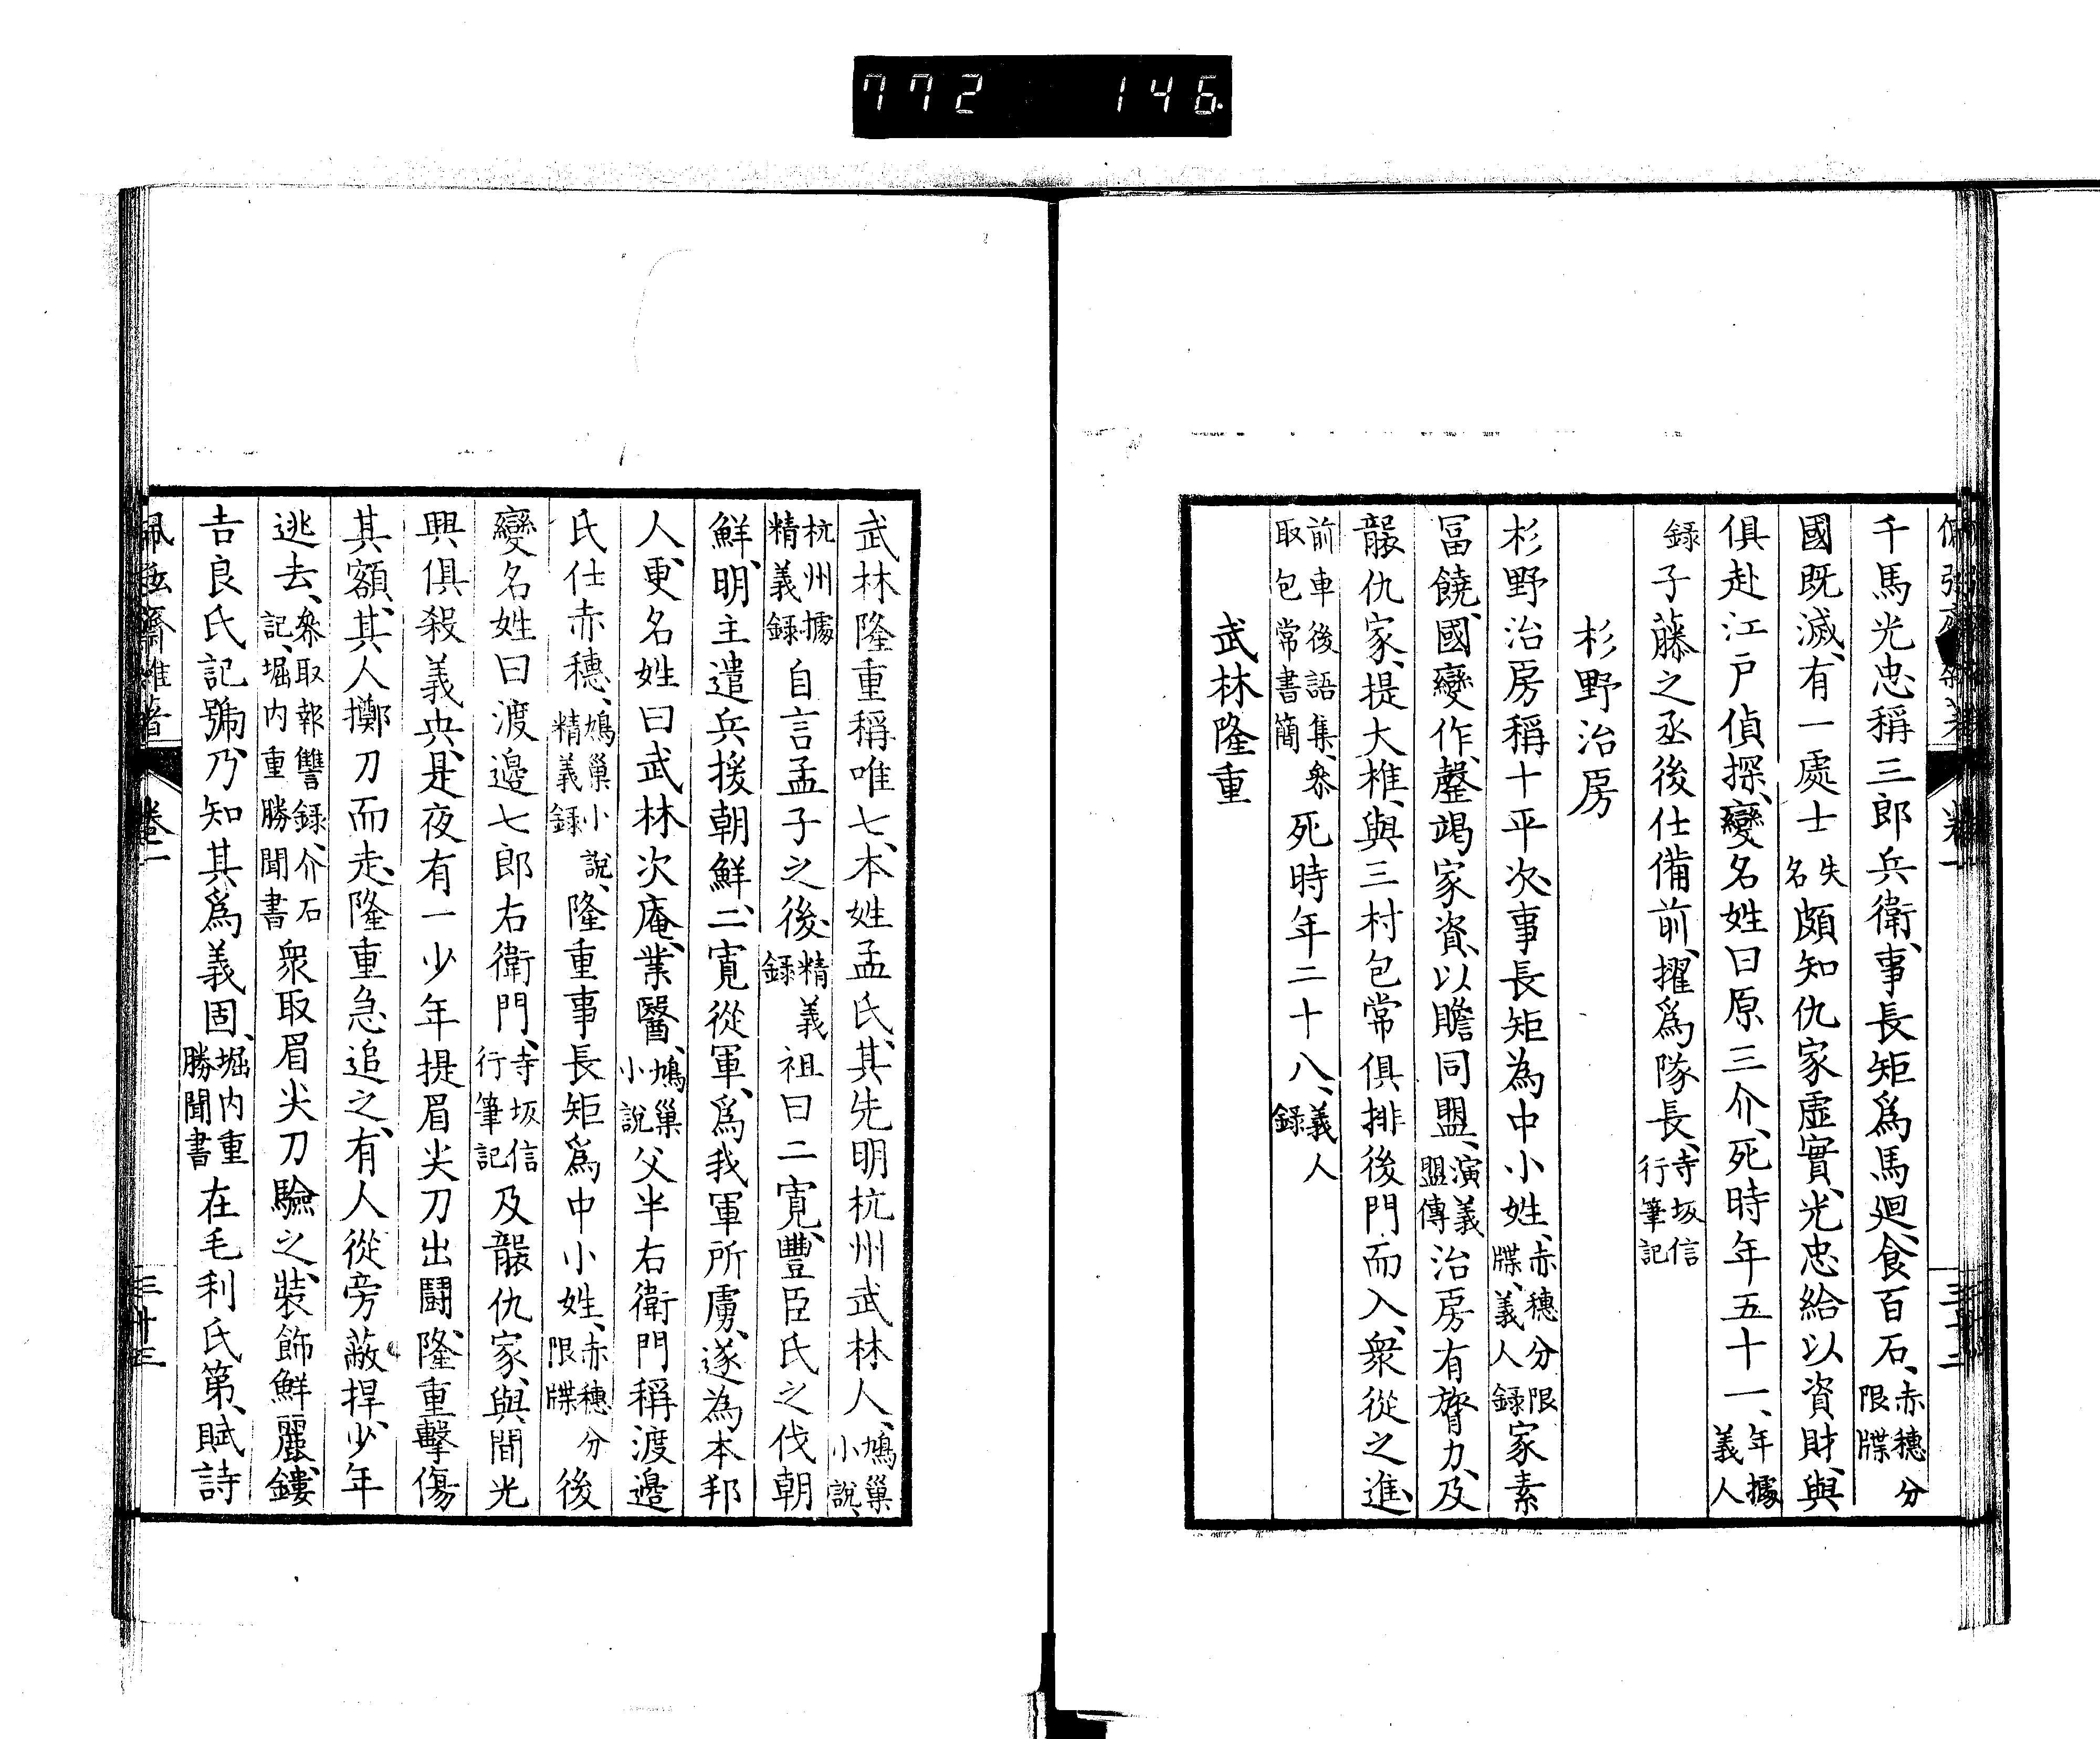 772 146
千馬光忠稱三郎兵衛、事長矩爲馬廻、食百石、赤穗分限牒
國既滅、有一處士失名頗知仇家虛實、光忠給以資財、與
俱赴江戸偵探、變名姓曰原三介、死時年五十一、年據義人
錄子藤之丞後仕備前、擢爲隊長、寺坂信行筆記
杉野治房
杉野治房稱十平次、事長矩為中小姓、赤穗分限牒、義人錄家素
冨饒、國變作、罄竭家資、以贍同盟、演義盟傳治房有膂力、及
襲仇家、提大椎、與三村包常俱排後門而入、衆從之進、
前車後語集、叅取包常書簡死時年二十八、義人錄
武林隆重
武林隆重稱唯七、本姓孟氏、其先明杭州武林人、鳩巢小說、
杭州據精義錄自言孟子之後、精義錄祖曰二寛、豐臣氏之伐朝
鮮、明主遣兵援朝鮮、二寛從軍、爲我軍所虜、遂為本邦
人、更名姓曰武林次庵、業醫、鳩巢小說父半右衛門稱渡邉
氏仕赤穗、鳩巢小說、精義錄隆重事長矩爲中小姓、赤穗分限牒後
變名姓曰渡邉七郎右衛門、寺坂信行筆記及襲仇家、與間光
興俱殺義央、是夜有一少年提眉尖刀出鬪、隆重擊傷
其額、其人擲刀而走、隆重急追之、有人從旁蔽捍、少年
逃去、叅取報讐錄、介石記、堀内重勝聞書衆取眉尖刀驗之、裝飾鮮麗、鏤
吉良氏記號、乃知其爲義固、堀内重勝聞書在毛利氏第、賦詩
佩弦齋雜著 卷二 三十三